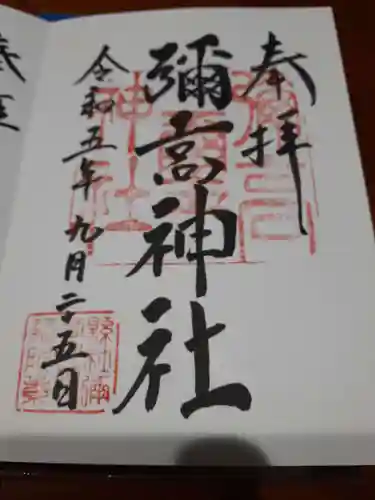 奉拝
彌高神社
令和五年九月二十五日